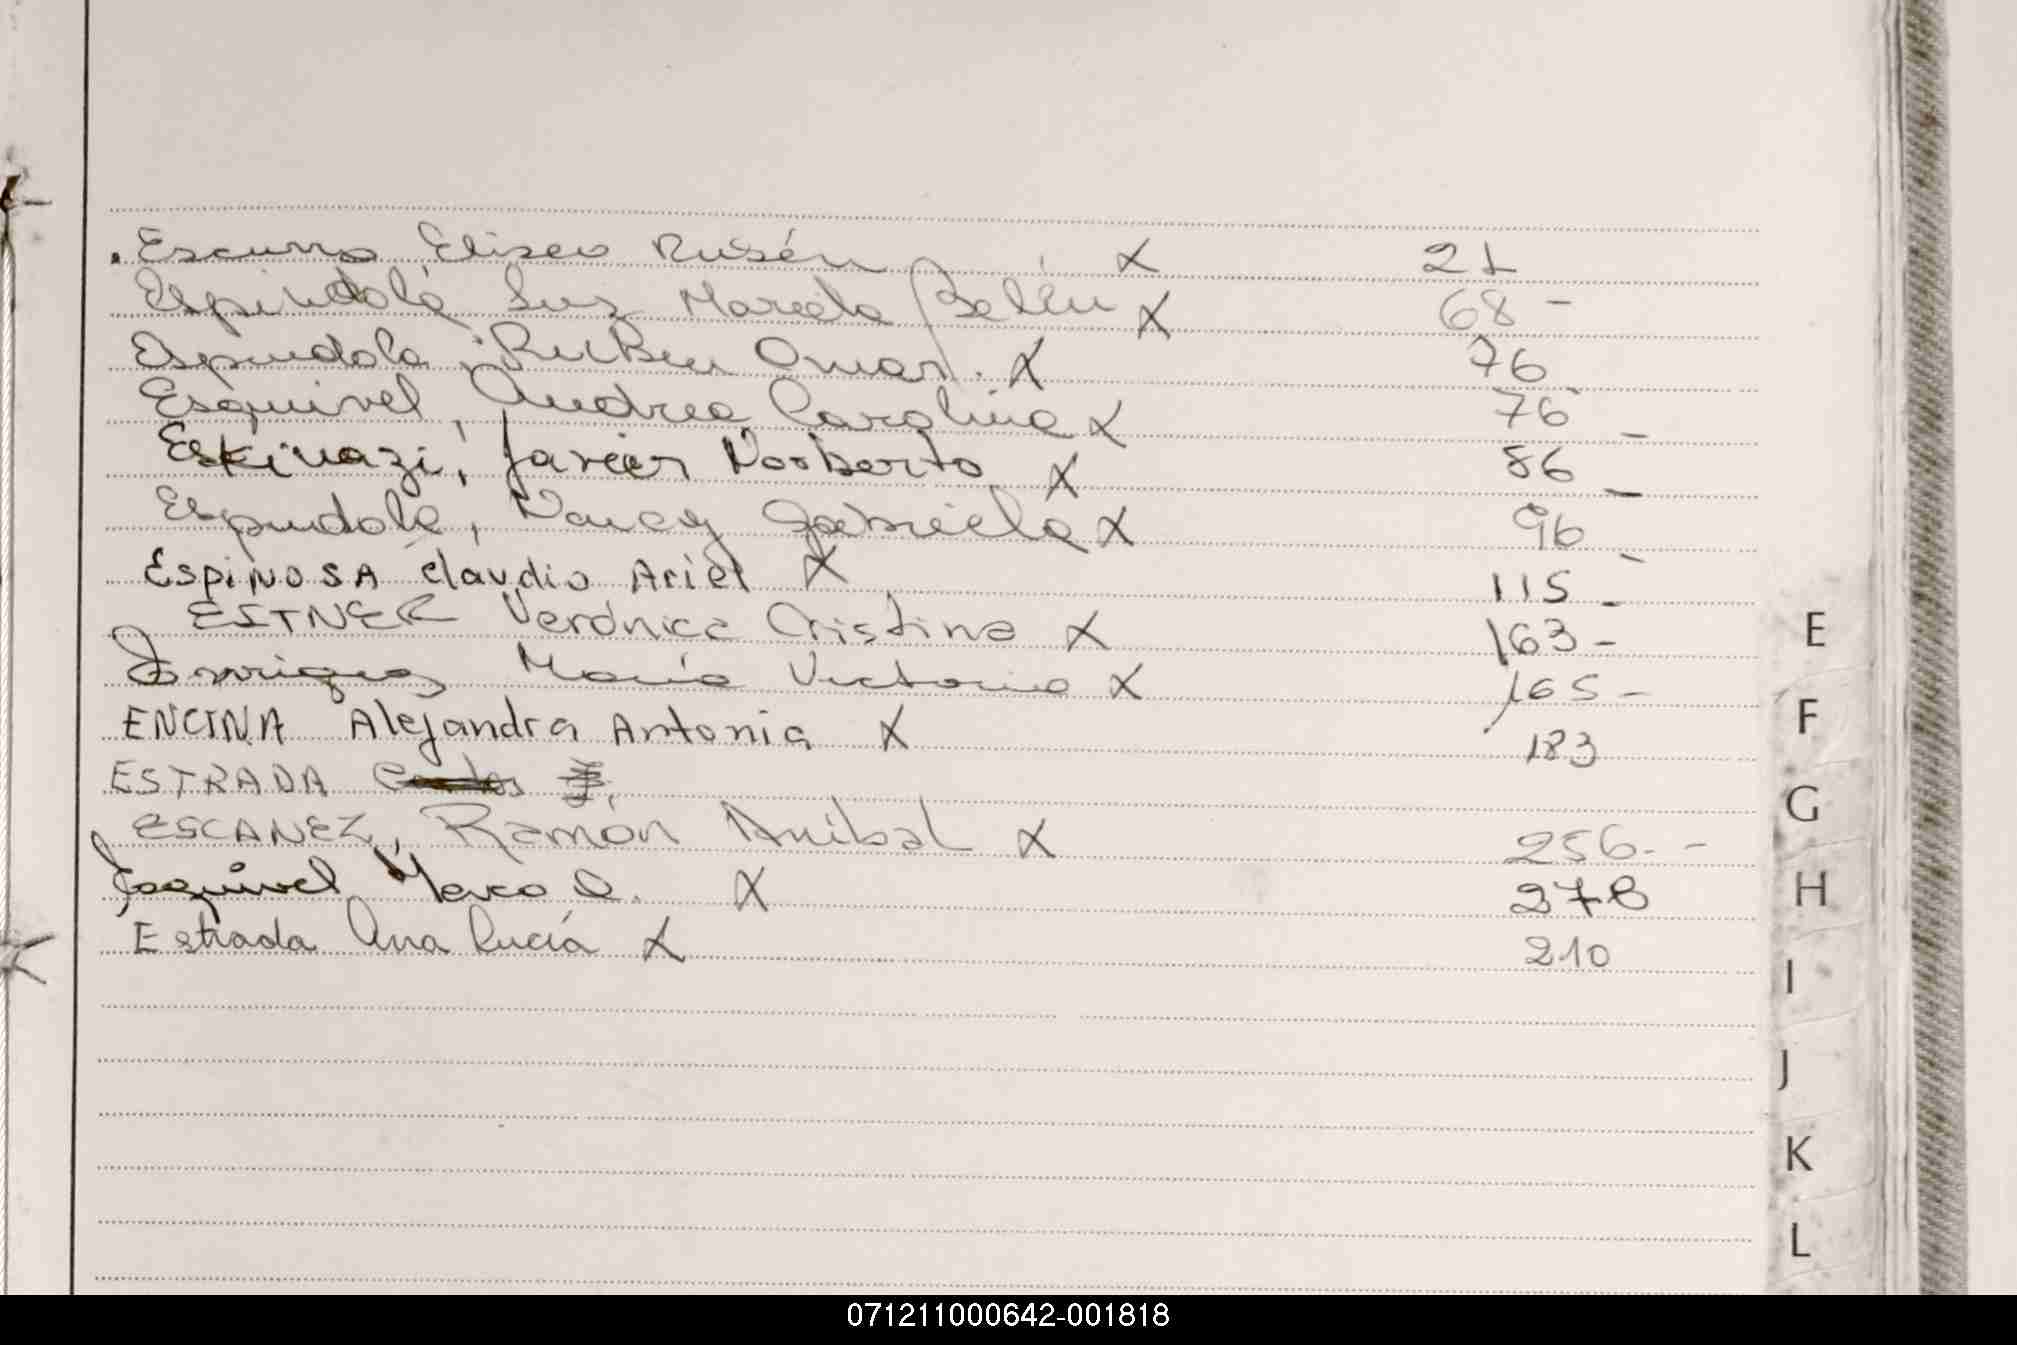 . Escurra Eliseo Rubén X 21
Espindola, Luz Mariela Belén X 68 -
Espindola, Ruben Omar. X 76
Esquivel, Andrea Carolina X 76 -
Eskinazi, Javier Norberto X 86 -
Espindola, Nancy Gabriela X 96 -
ESPINOSA Claudio Ariel X 115 -
ESTNER Verónica Cristina X 163 -
Enriquez María Victoria X 165 -
ENCINA Alejandra Antonia X 183
ESTRADA
ESCANEZ, Ramón Anibal X 256 - -
Esquivel Marco X 278
Estrada Ana Lucía X 210
E
F
G
H
I
J
K
L
071211000642-001818